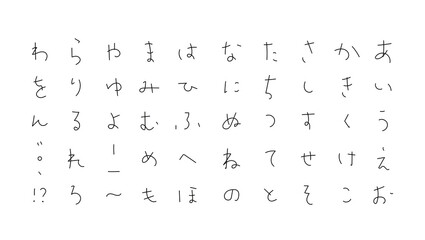 あいうえお
かきくけこ
さしすせそ
たちつてと
なにぬねの
はひふへほ
まみむめも
やゆよ|ー〜
らりるれろ
わをん゛。、!?